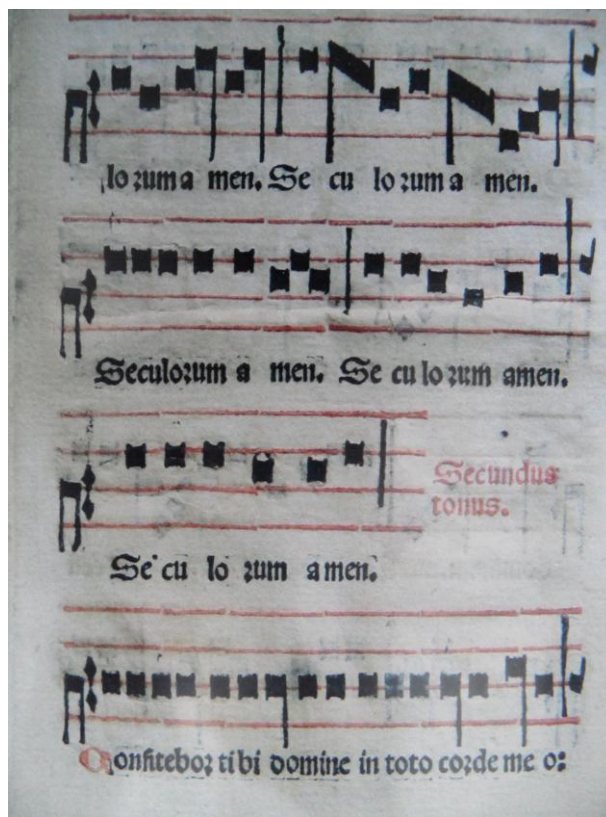 loꝛum a men. Se cu lo ꝛum a men.
Seculoꝛum a men. Se cu lo ꝛum amen.
Secundus
tonus.
Se cu lo ꝛum amen.
Confiteboꝛ ti bi domine in toto coꝛde me o: